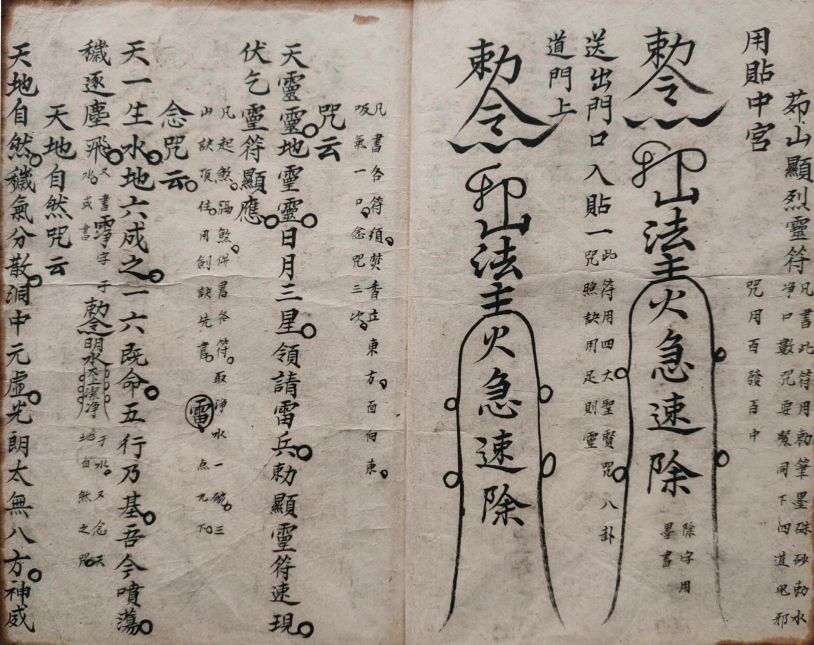 茆山顯烈靈符
凡書此符用勅筆墨硃砂勅水
淨口數咒要幫同下四道児邪
咒用百發百中
用貼中宮
勅令 卯山法主火急速除
除字用
墨書
送出門口入貼一
此符用四大聖賢咒八卦
咒照訣用足則靈
道門上
勅念 卯山法主火急速除
凡書各符須焚香立東方面向東
吸氣一口念咒三次
咒云
天靈靈地靈靈日月三星領請雷兵勅顯靈符速現
伏乞靈符顯應
凡起煞隔煞併書各符取淨水一碗三
山訣頂住用劍訣先書 雷 点九下
念咒云
天一生水地六成之一六既命五行乃基吾今噴蕩
穢逐塵飛
又書淨字于
水或書
勅令明水太上潔淨
于水又念天
地自然之咒
天地自然咒云
天地自然穢氣分散洞中元虛光朗太無八方神威